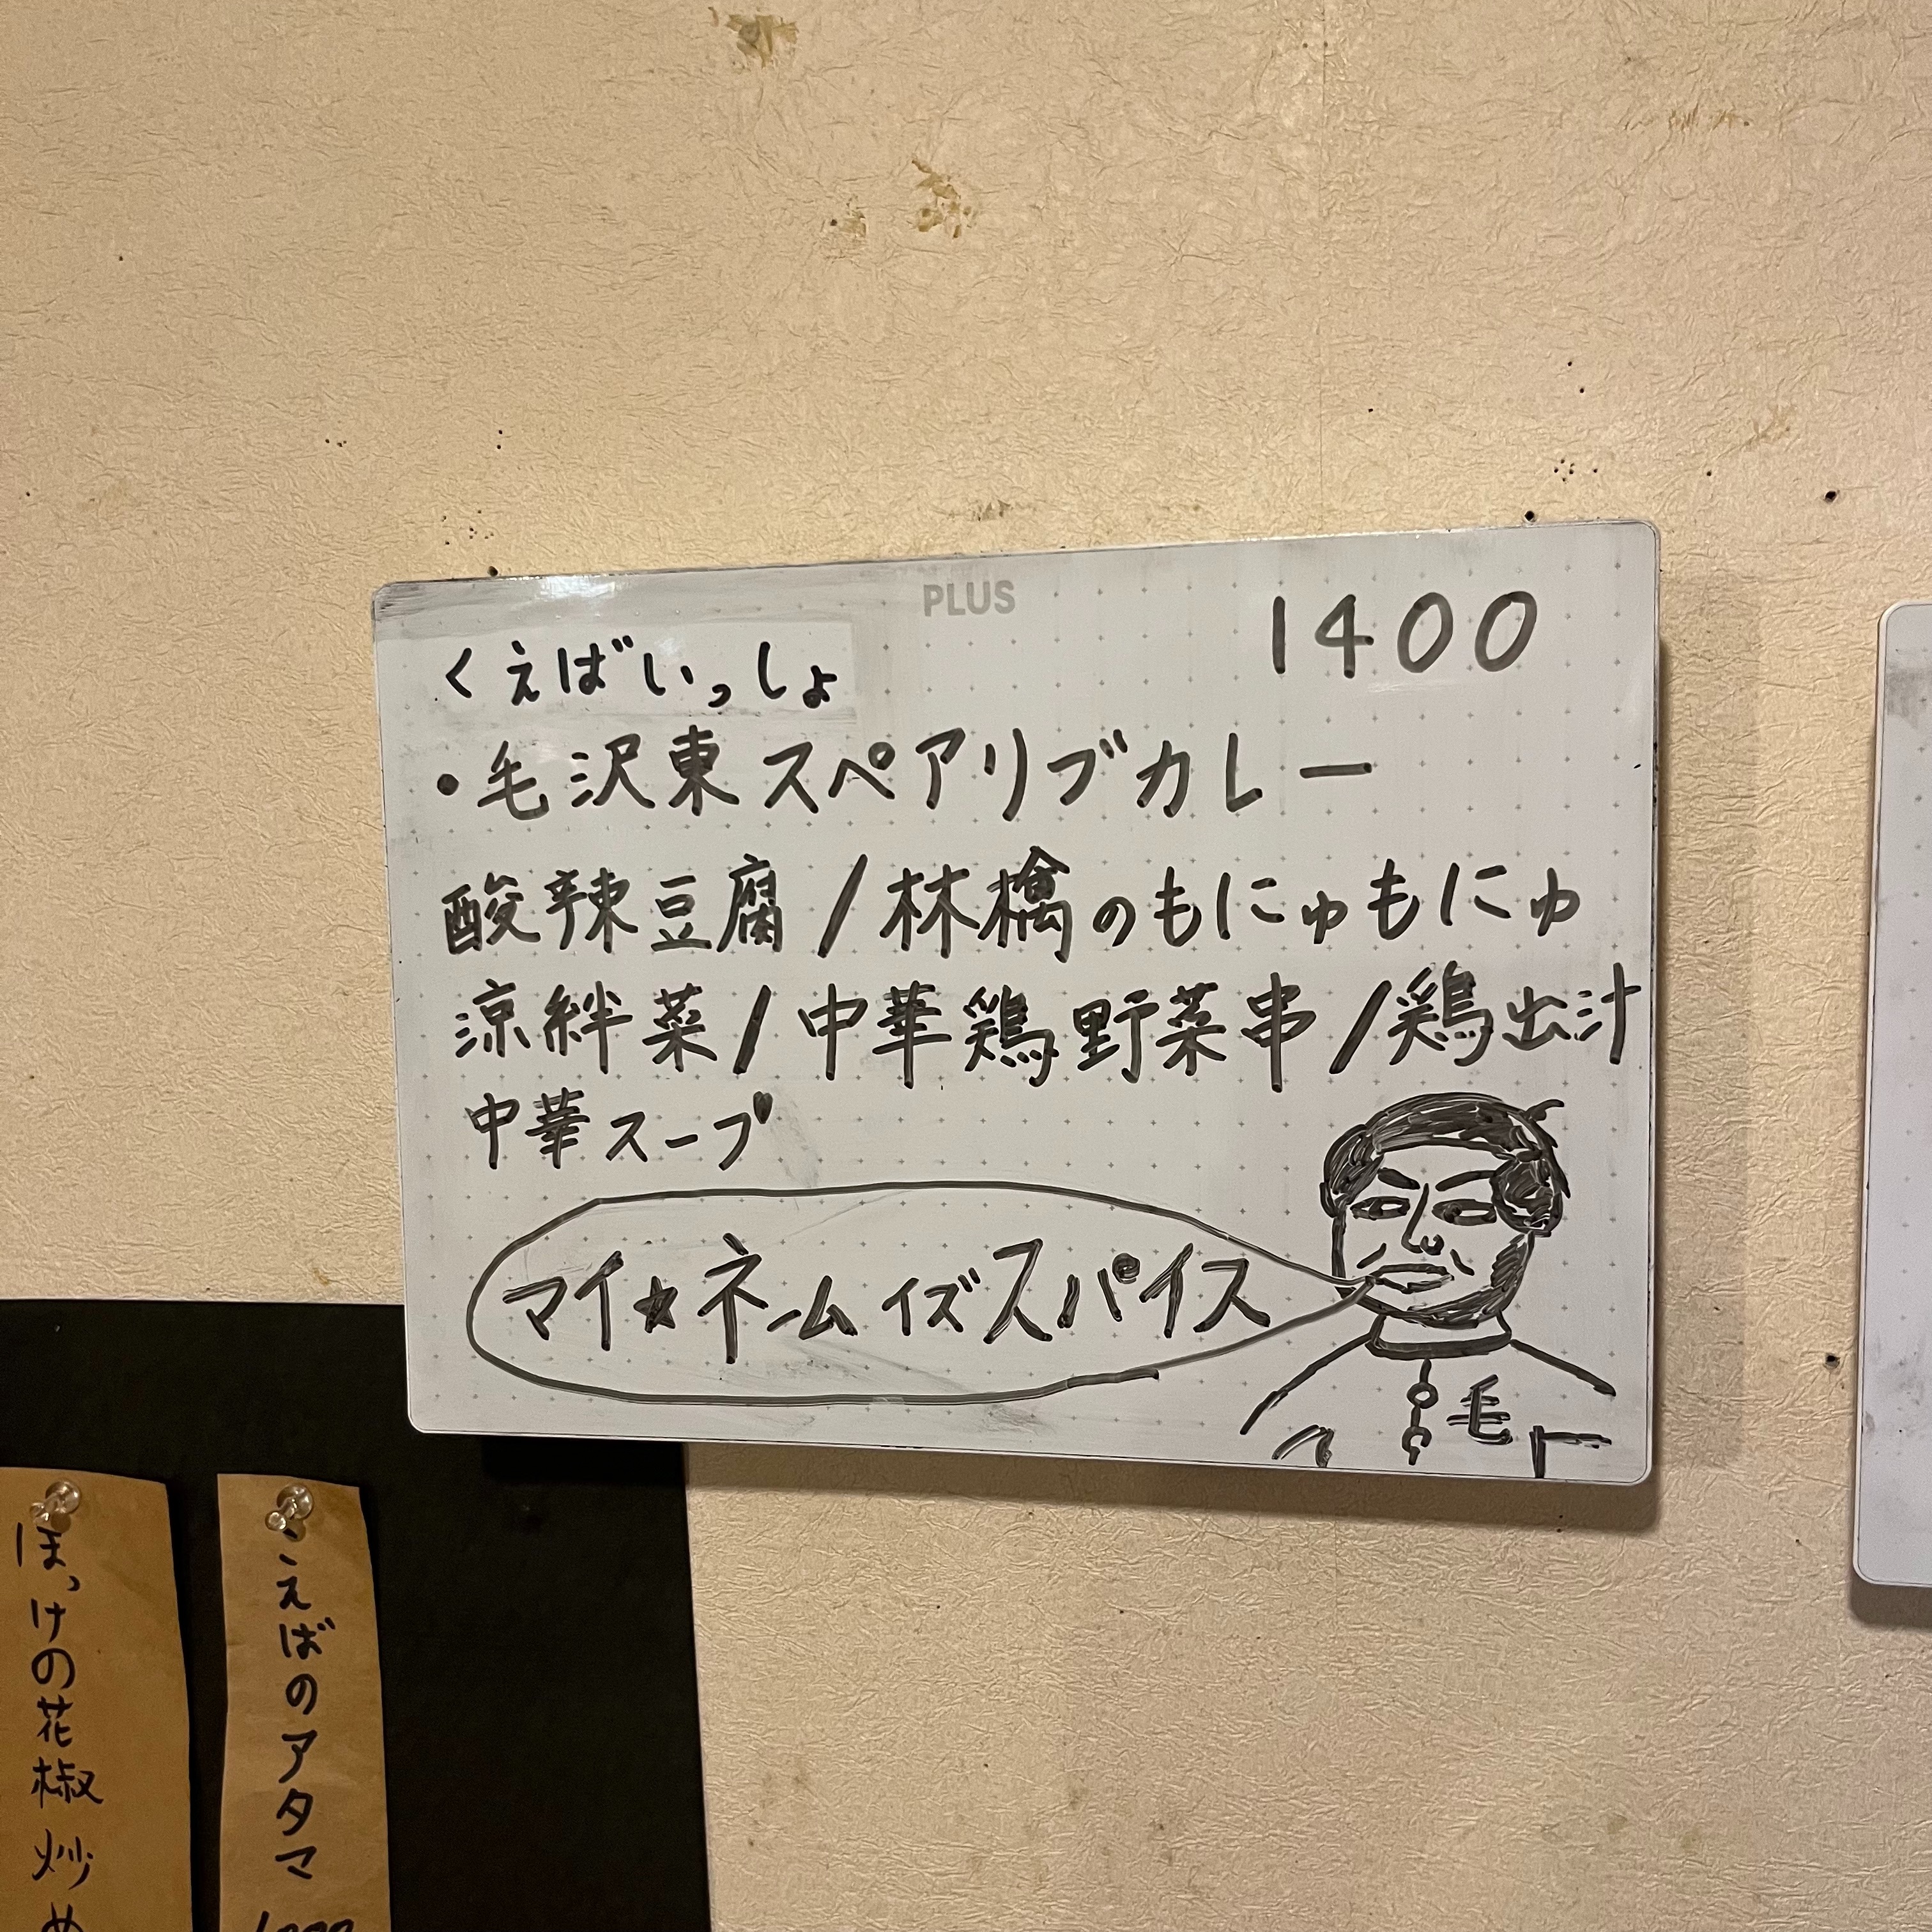 PLUS
1400
くえばいっしょ
・毛沢東スペアリブカレー
酸辣豆腐/林檎のもにゅもにゅ
涼絆菜/中華鶏野菜串/鶏出汁
中華スープ
マイ★ネームイズスパイス
毛
えばのアタマ
ほっけの花椒炒め